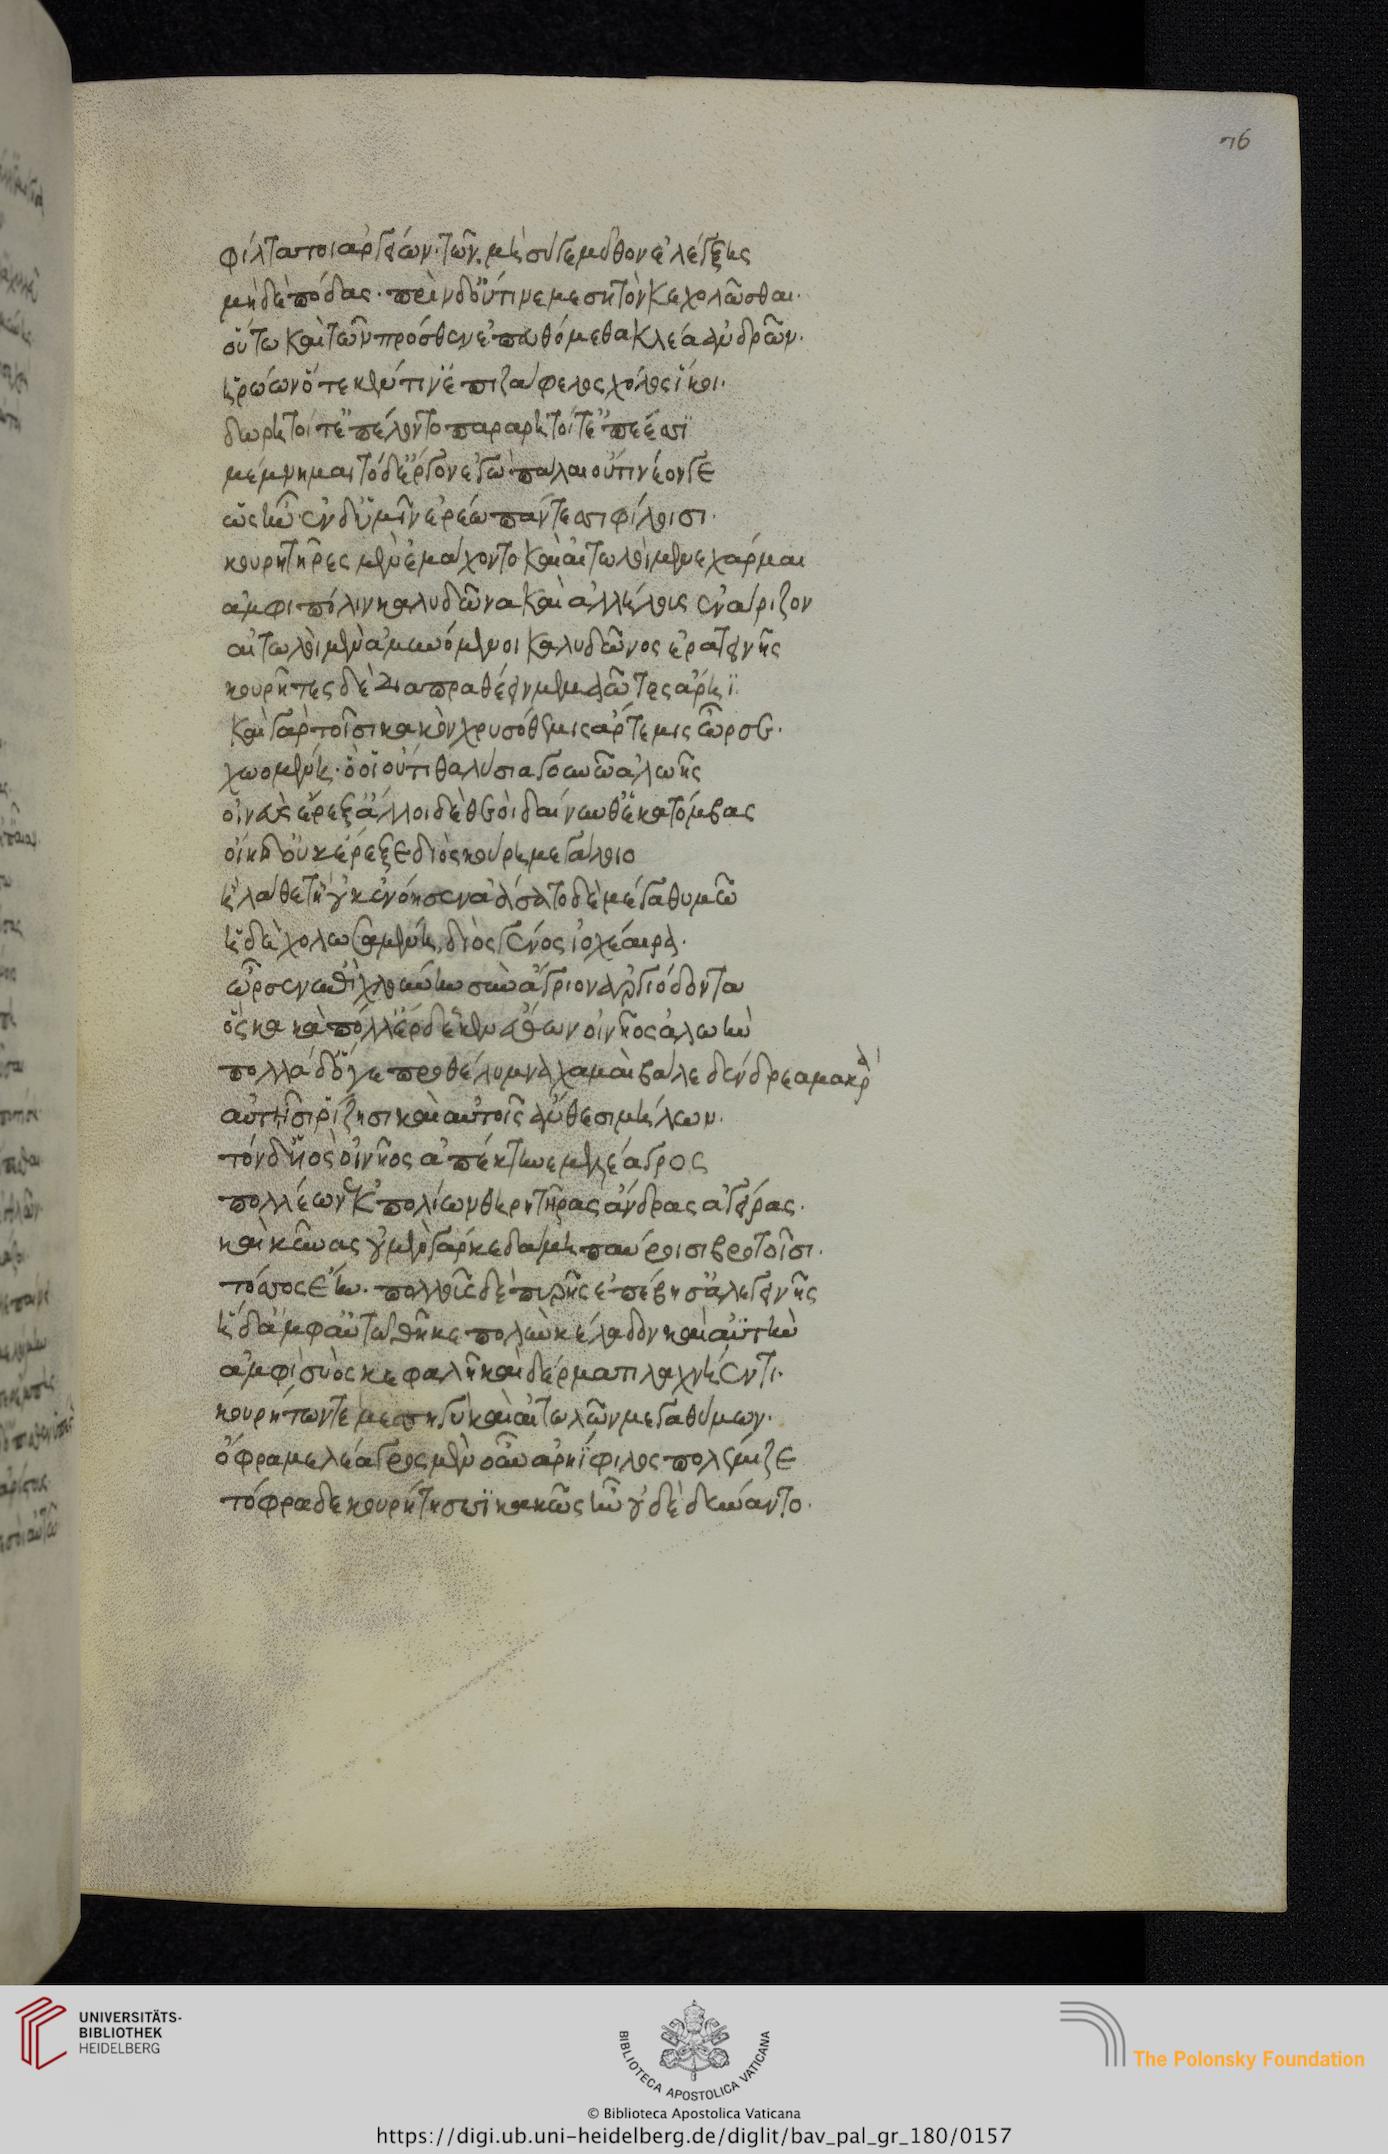 76
φίλτατοι ἀργείων. τῶν μὴ σύ γε μῦθον ἐλέγξης
μηδὲ πόδας. πρὶν δ' οὔτι νεμεσητὸν κεχολῶσθαι.
οὕτω καὶ τῶν πρόσθεν ἐπευθόμεθα κλέα ἀνδρῶν.
ἡρώων ὅτε κέν τιν' ἐπιζάφελος χόλος ἵκοι.
δωρητοί τε πέλοντο παράρητοί τ' ἐπέεσσι
μέμνημαι τόδε ἔργον ἐγὼ πάλαι οὔτι νέον γε
ὡς ἦν ἐν δ' ὑμῖν ἐρέω πάντεσσι φίλοισι.
κουρητῆρες μὲν ἐμάχοντο καὶ αἰτωλοὶ μενεχάρμαι
ἀμφὶ πόλιν καλυδῶνα καὶ ἀλλήλους ἐνάριζον
αἰτωλοὶ μὲν ἀμυνόμενοι καλυδῶνος ἐρατεινῆς
κουρῆτες δὲ διαπραθέειν μεμαῶτες ἄρηϊ.
καὶ γὰρ τοῖσι κακὸν χρυσόθρονος ἄρτεμις ὦρσε.
χωομένη. ὅ οἱ οὔτι θαλύσια γουνῶ ἀλωῆς
οἰνεὺς ἔρεξ' ἄλλοι δὲ θεοὶ δαίνυνθ' ἑκατόμβας
οἴη δ' οὐκ ἔρεξε διὸς κούρη μεγάλοιο
ἢ λάθετ' ἢ οὐκ ἐνόησεν ἀάσατο δὲ μέγα θυμῶ
ἡ δὲ χολωσαμένη δῖος γένος ἰοχέαιρα.
ὦρσεν ἐπὶ χλούνην σῦν ἄγριον ἀργιόδοντα
ὃς κακὰ πόλλ' ἔρδεσκεν ἔθων οἰνῆος ἀλωὴν
πολλὰ δ' ὅγε προθέλυμνα χαμαὶ βάλε δένδρεα μακρὰ
αὐτῆσι ῥίζησι καὶ αὐτοῖς ἄνθεσι μήλων.
τὸν δ' υἱὸς οἰνῆος ἀπέκτεινε μελέαγρος
πολλέων ἐκ πολίων θηρητῆρας ἄνδρας ἀγείρας.
καὶ κύνας οὐ μὲν γάρ κε δάμη παύροισι βροτοῖσι.
τόσσος ἔην. πολλοὺς δὲ πυρῆς ἐπέβησ' ἀλεγεινῆς
ἡ δ' ἀμφ' αὐτῶ θῆκε πολὺν κέλαδον καὶ ἀϋτὴν
ἀμφὶ συὸς κεφαλῆ καὶ δέρματι λαχνήεντι.
κουρήτων τε μεσσηγὺ καὶ αἰτωλῶν μεγαθύμων.
ὄφρα μελέαγρος μὲν οὖν ἀρηΐφιλος πολέμιζε
τόφρα δὲ κουρήτησσϊ κακῶς ἦν οὐδὲ δύναντο.
UNIVERSITÄTS-
BIBLIOTHEK
HEIDELBERG
BIBLIOTECA APOSTOLICA VATICANA
The Polonsky Foundation
© Biblioteca Apostolica Vaticana
https://digi.ub.uni-heidelberg.de/diglit/bav_pal_gr_180/0157